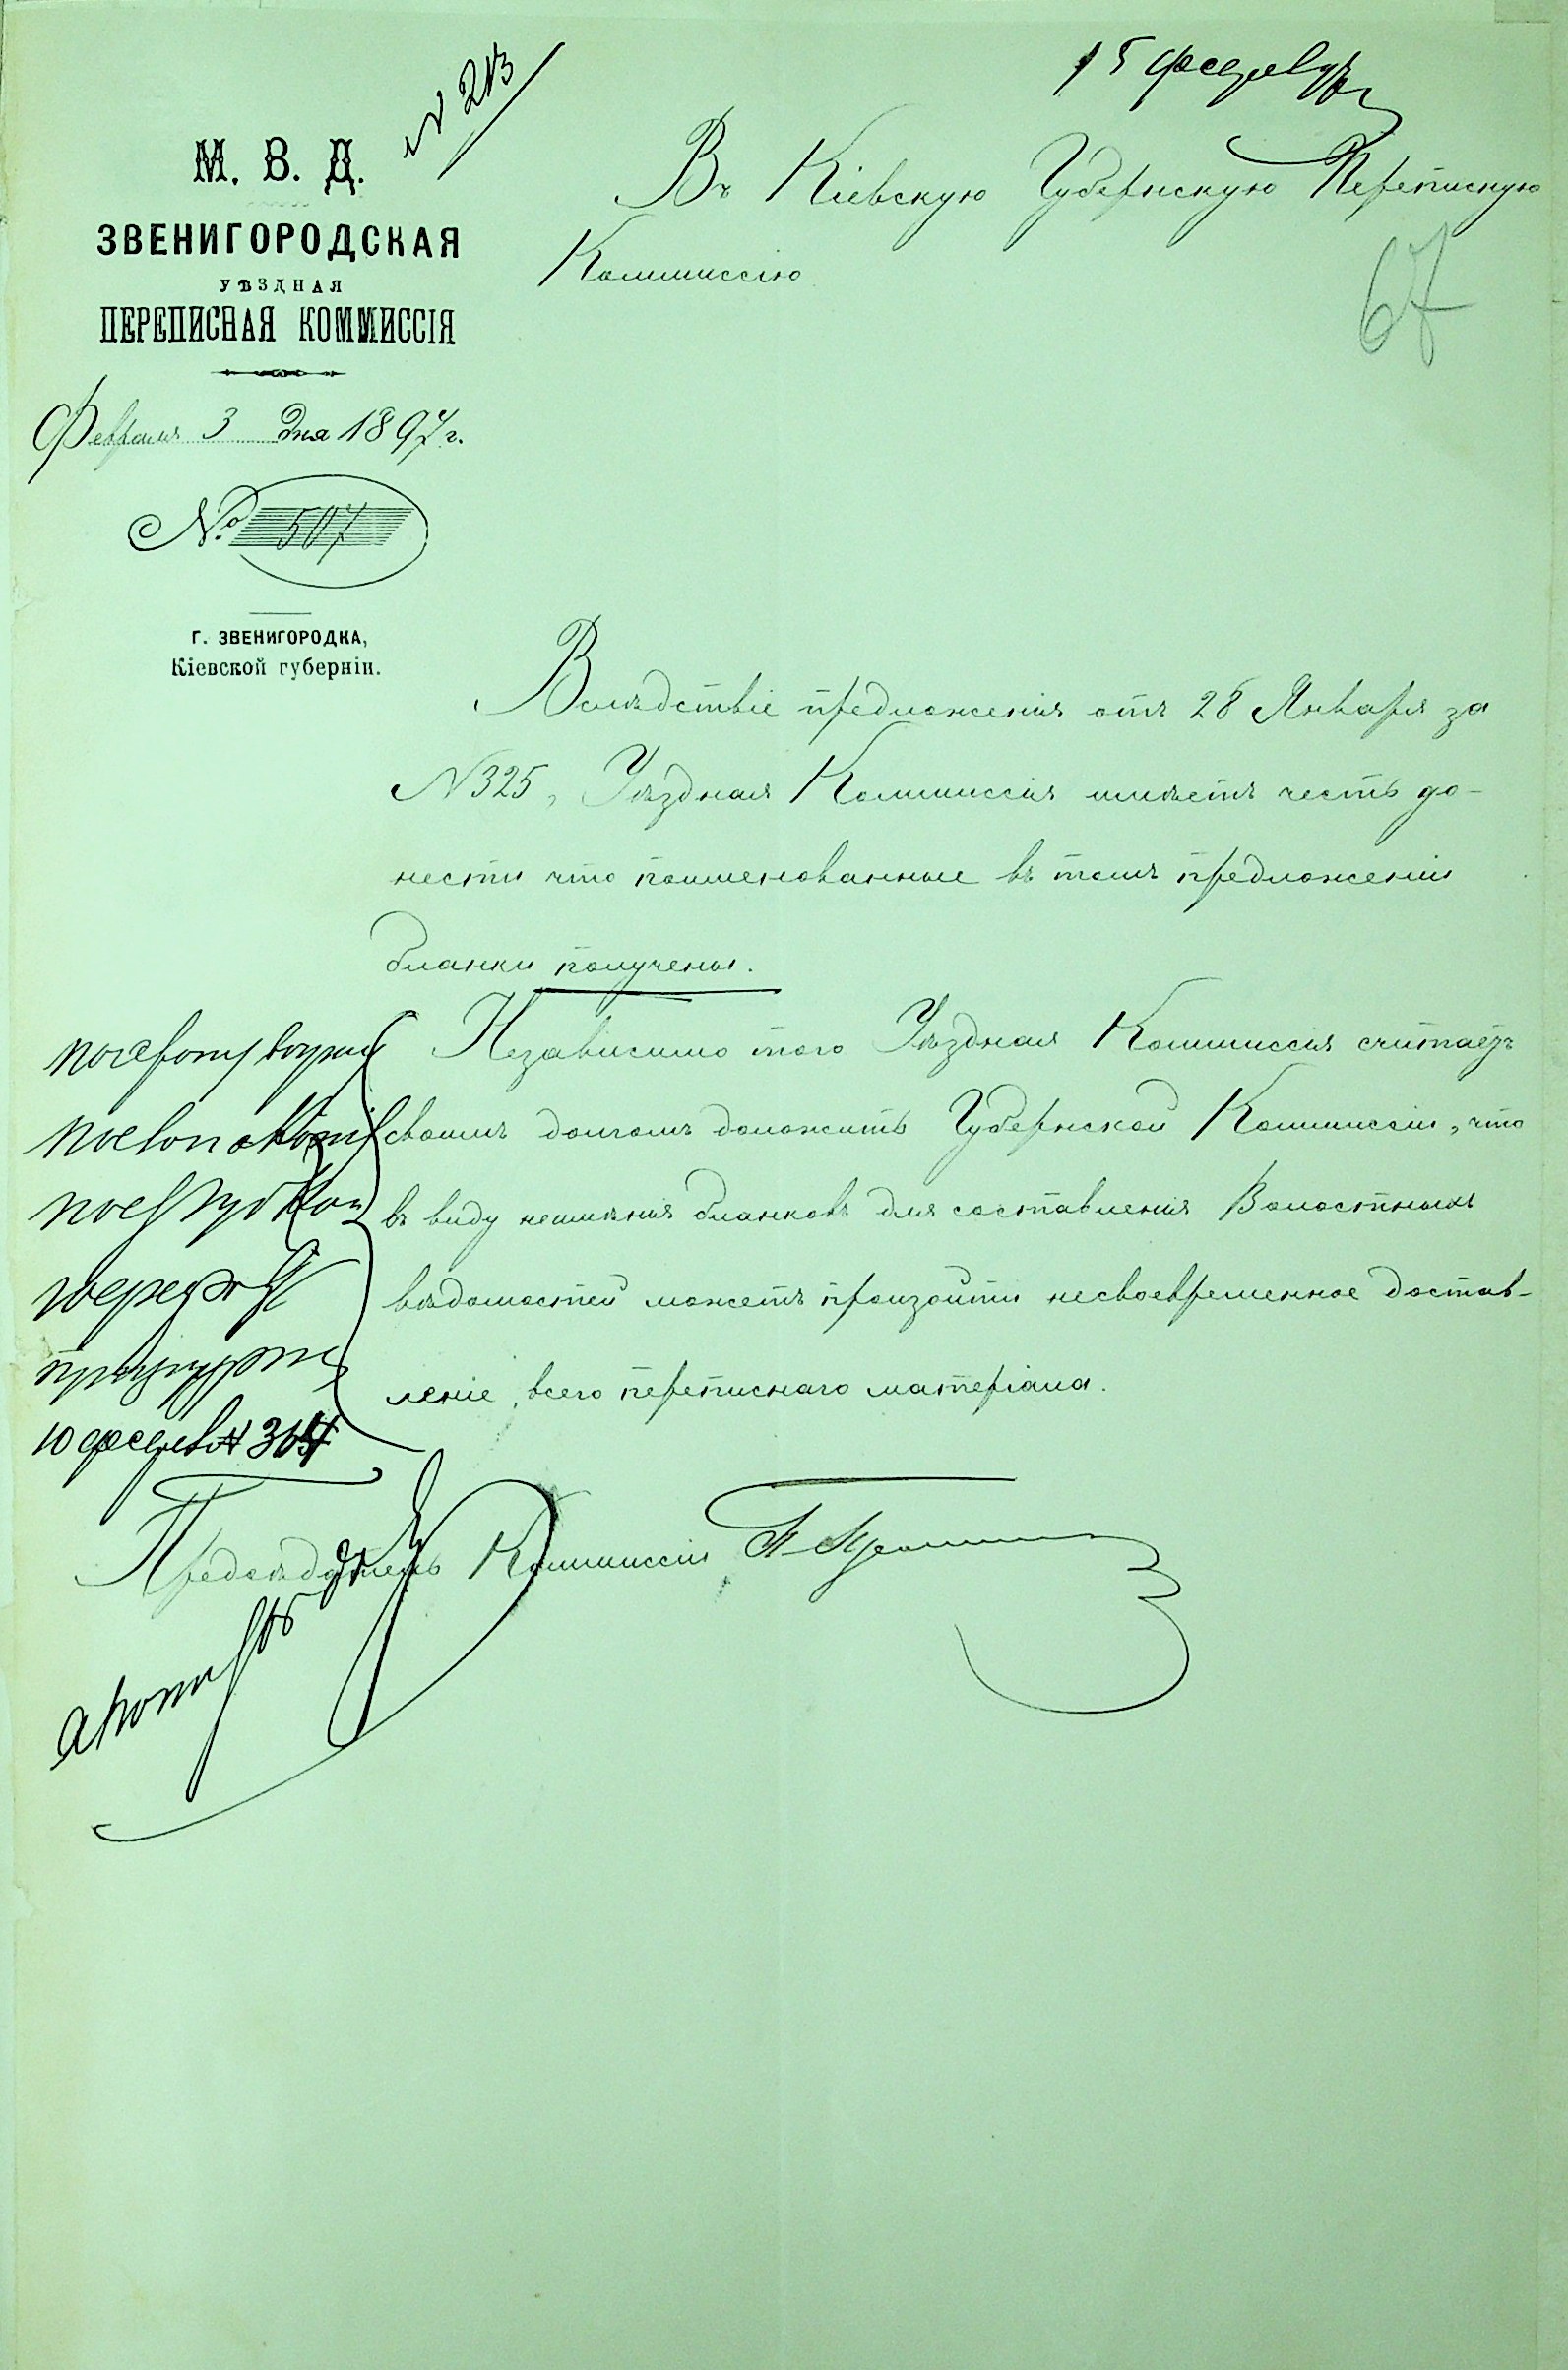 № 213
15 февр
М. В. Д.
ЗВЕНИГОРОДСКАЯ
УѢЗДНАЯ
ПЕРЕПИСНАЯ КОММИССІЯ
Февраля 3 дня 1897 г.
№ 507
Г. ЗВЕНИГОРОДКА,
Кіевской губерніи.
Въ Кіевскую Губернскую Переписную
Коммиссію
67
Вслѣдствіе предложенія отъ 28 Января за
№ 325, Уѣздная Коммиссія имѣетъ честь до-
нести что поименованные въ томъ предложеніи
бланки получены.
Независимо того Уѣздная Коммиссія считаетъ
своимъ долгомъ доложить Губернской Коммиссіи, что
въ виду неимѣнія бланковъ для составленія Волостныхъ
вѣдомостей можетъ произойти несвоевременное достав-
леніе всего переписнаго матеріала.
10 феврал №
Предсѣдатель Коммиссіи